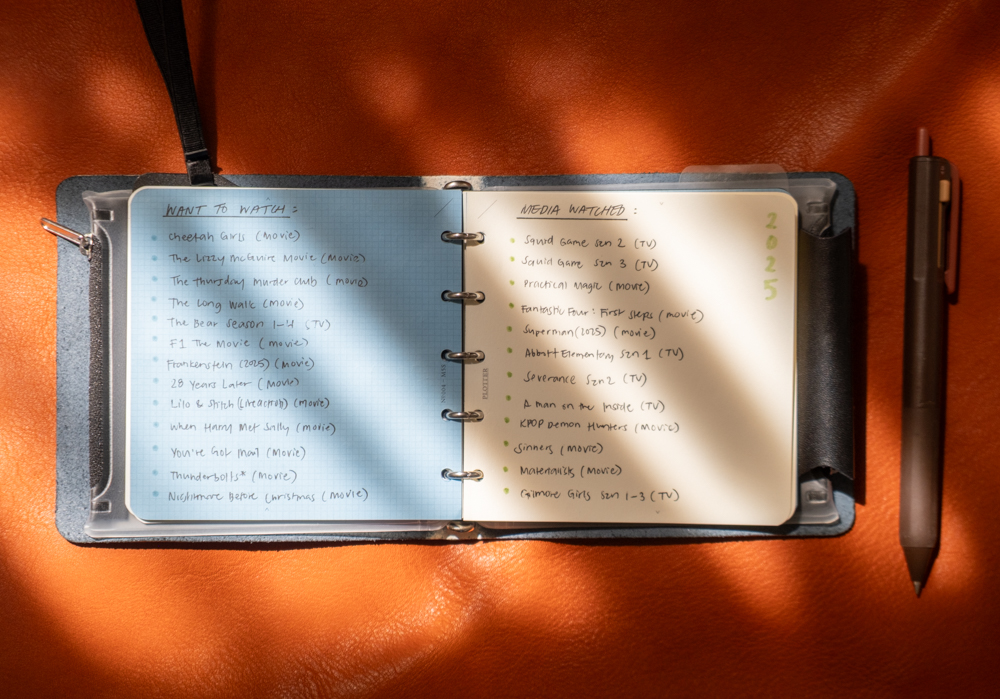 WANT TO WATCH :
Cheetah Girls (Movie)
The Lizzy McGuire Movie (Movie)
The Thursday Murder Club (movie)
The Long Walk (movie)
The Bear Season 1-4 (TV)
F1 The Movie (movie)
Frankenstein (2025) (Movie)
28 Years Later (Movie)
Lilo & Stitch (Live action) (Movie)
When Harry Met Sally (movie)
You're Got Mail (Movie)
Thunderbolts* (Movie)
Nightmare Before Christmas (Movie)
MEDIA WATCHED :
2025
Squid Game szn 2 (TV)
Squid Game szn 3 (TV)
Practical Magic (movie)
Fantastic Four: First Steps (movie)
Superman (2025) (movie)
Abbott Elementary szn 1 (TV)
Severance szn 2 (TV)
A man on the Inside (TV)
KPOP Demon Hunters (Movie)
Sinners (Movie)
Materialists (Movie)
Gilmore Girls szn 1-3 (TV)
PLOTTER